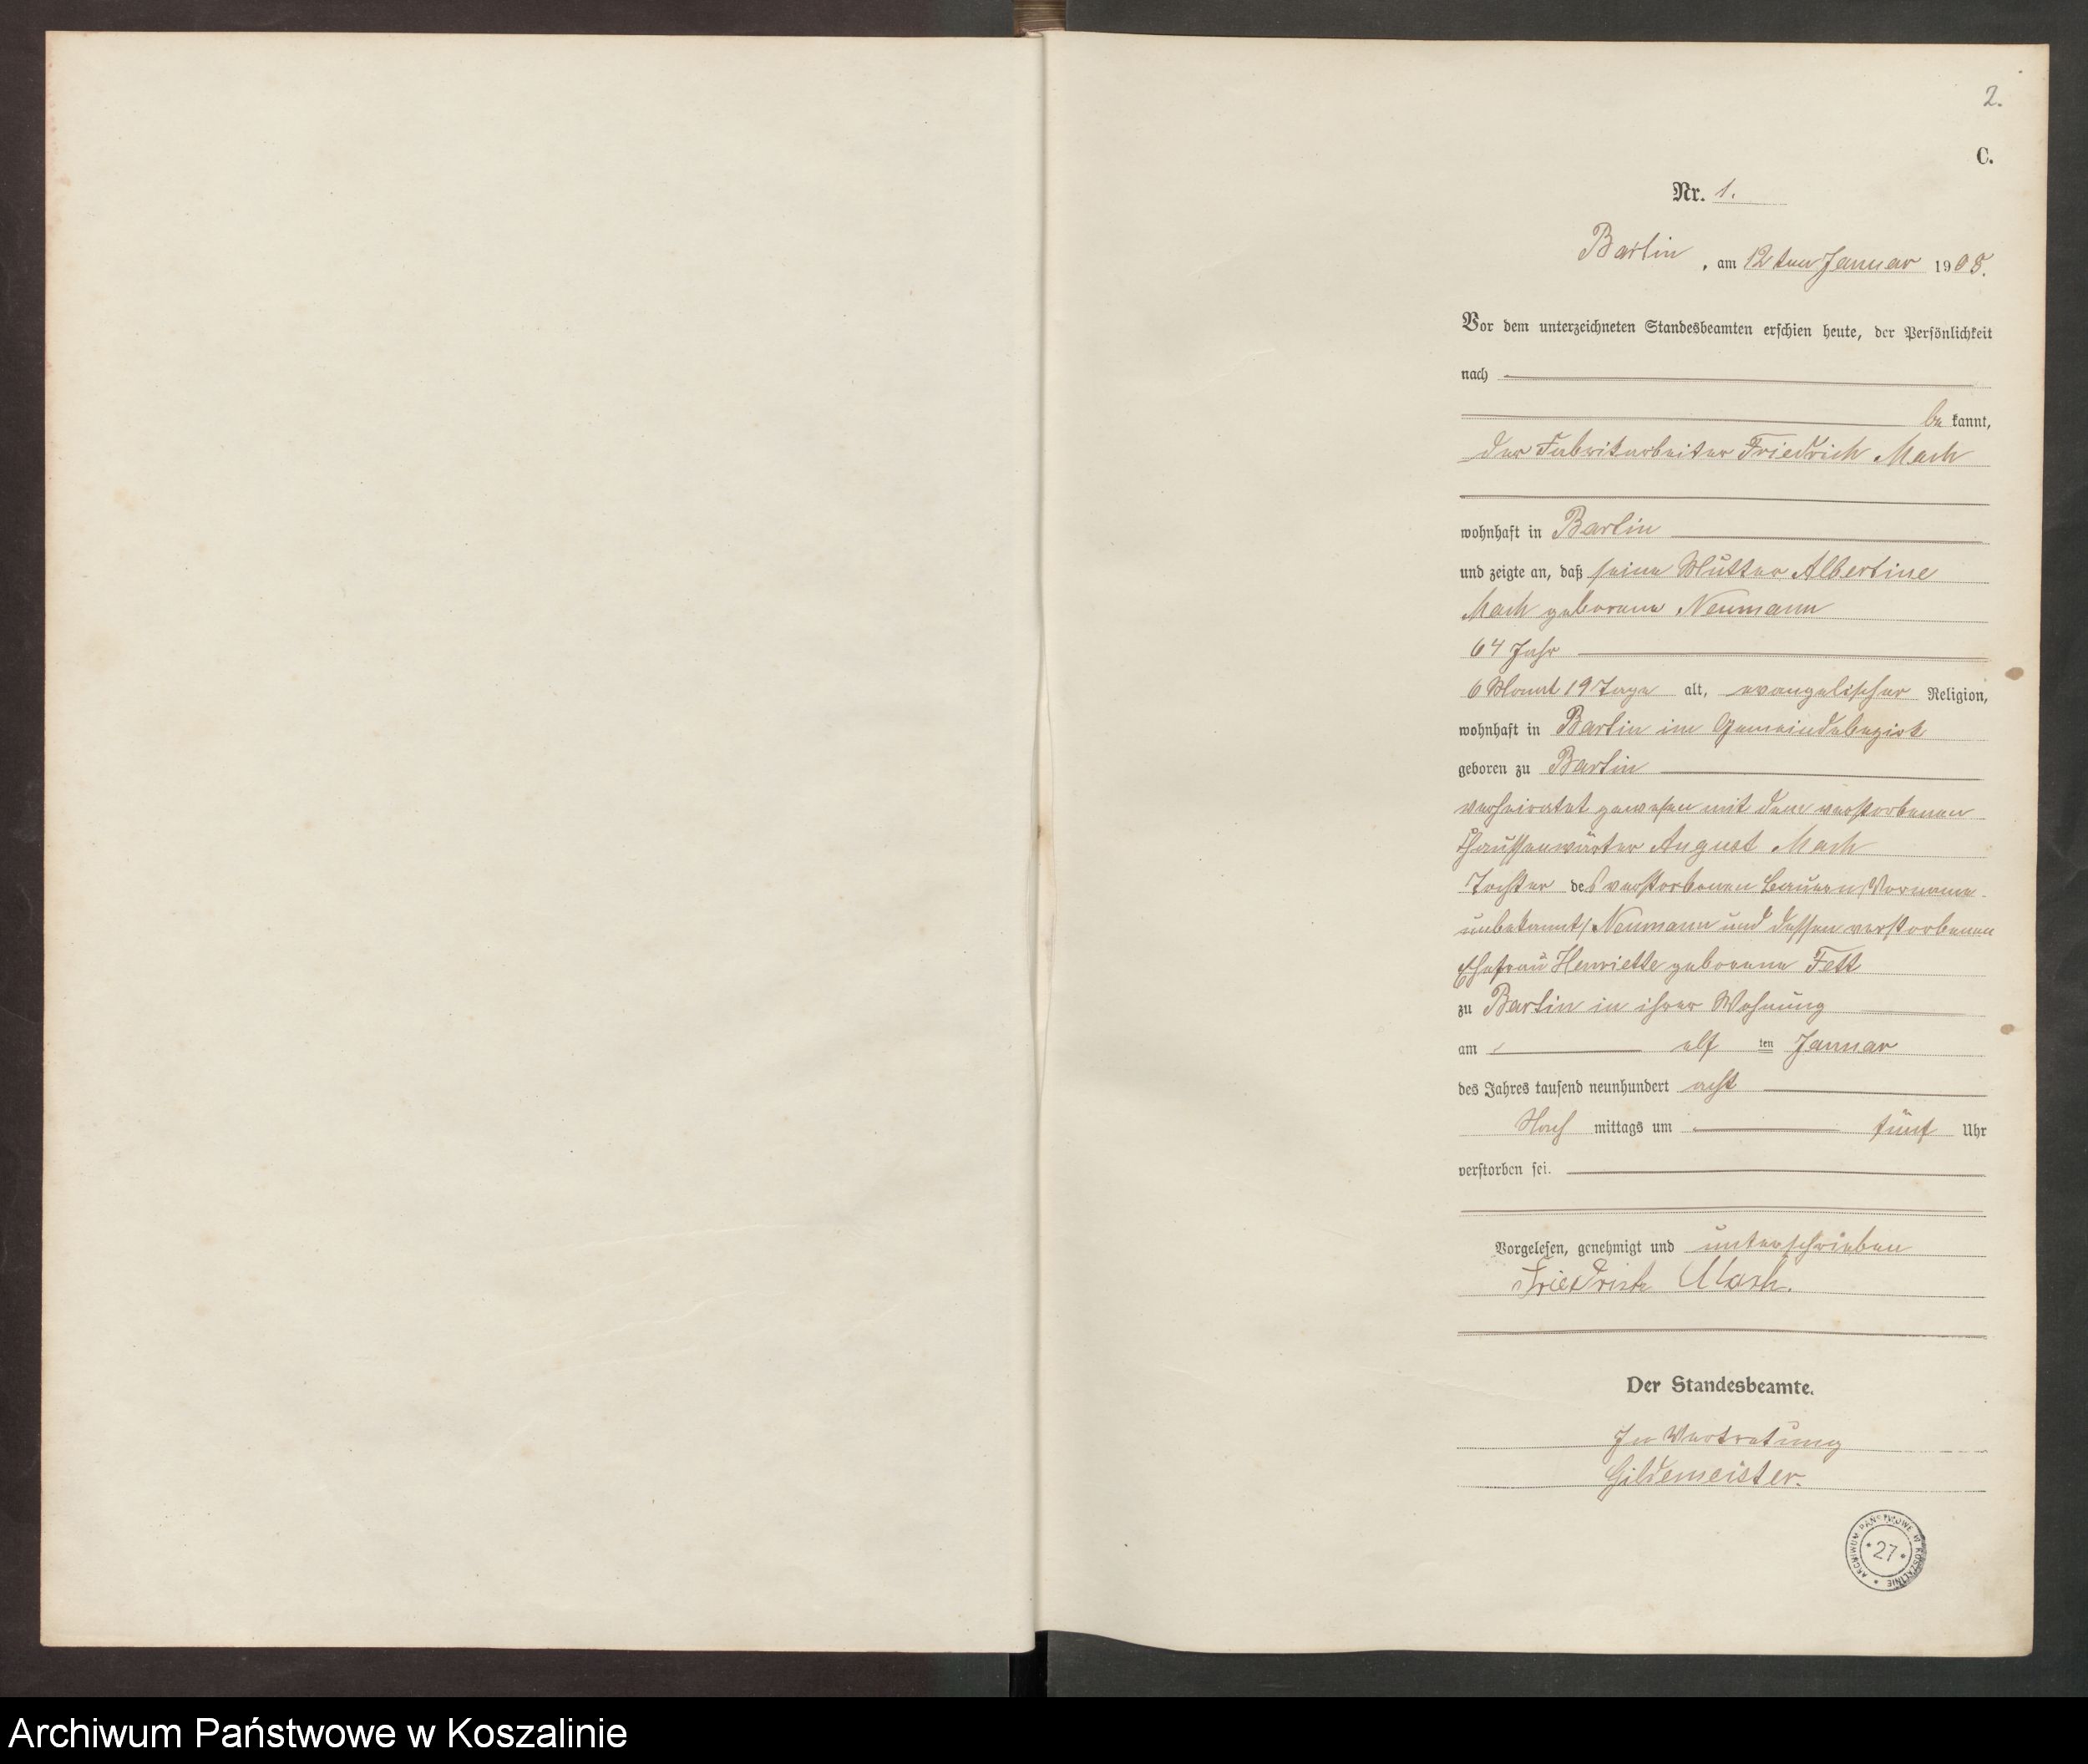 2.
C.
Nr. 1.
Bartin, am 12ten Januar 1908.
Vor dem unterzeichneten Standesbeamten erschien heute, der Persönlichkeit
nach
be kannt,
der Fabrikarbeiter Friedrich Mach
wohnhaft in Bartin
und zeigte an, daß seine Mutter Albertine
Mach geborene Neumann
64 Jahr
6 Monat 19 Tage alt, evangelischer Religion,
wohnhaft in Bartin im Gemeindebezirk
geboren zu Bartin
verheiratet gewesen mit dem verstorbenen
Chausseewärter August Mach
Tochter des verstorbenen Bauern, Vorname
unbekannt, Neumann und dessen verstorbenen
Ehefrau Henriette geborene Fett
zu Bartin in ihrer Wohnung
am elf ten Januar
des Jahres tausend neunhundert acht
Nach mittags um fünf Uhr
verstorben sei.
Vorgelesen, genehmigt und unterschrieben
Friedrich Mach.
Der Standesbeamte.
In Vertretung
Gildemeister.
ARCHIWUM PAŃSTWOWE W KOSZALINIE
* 27 *
Archiwum Państwowe w Koszalinie